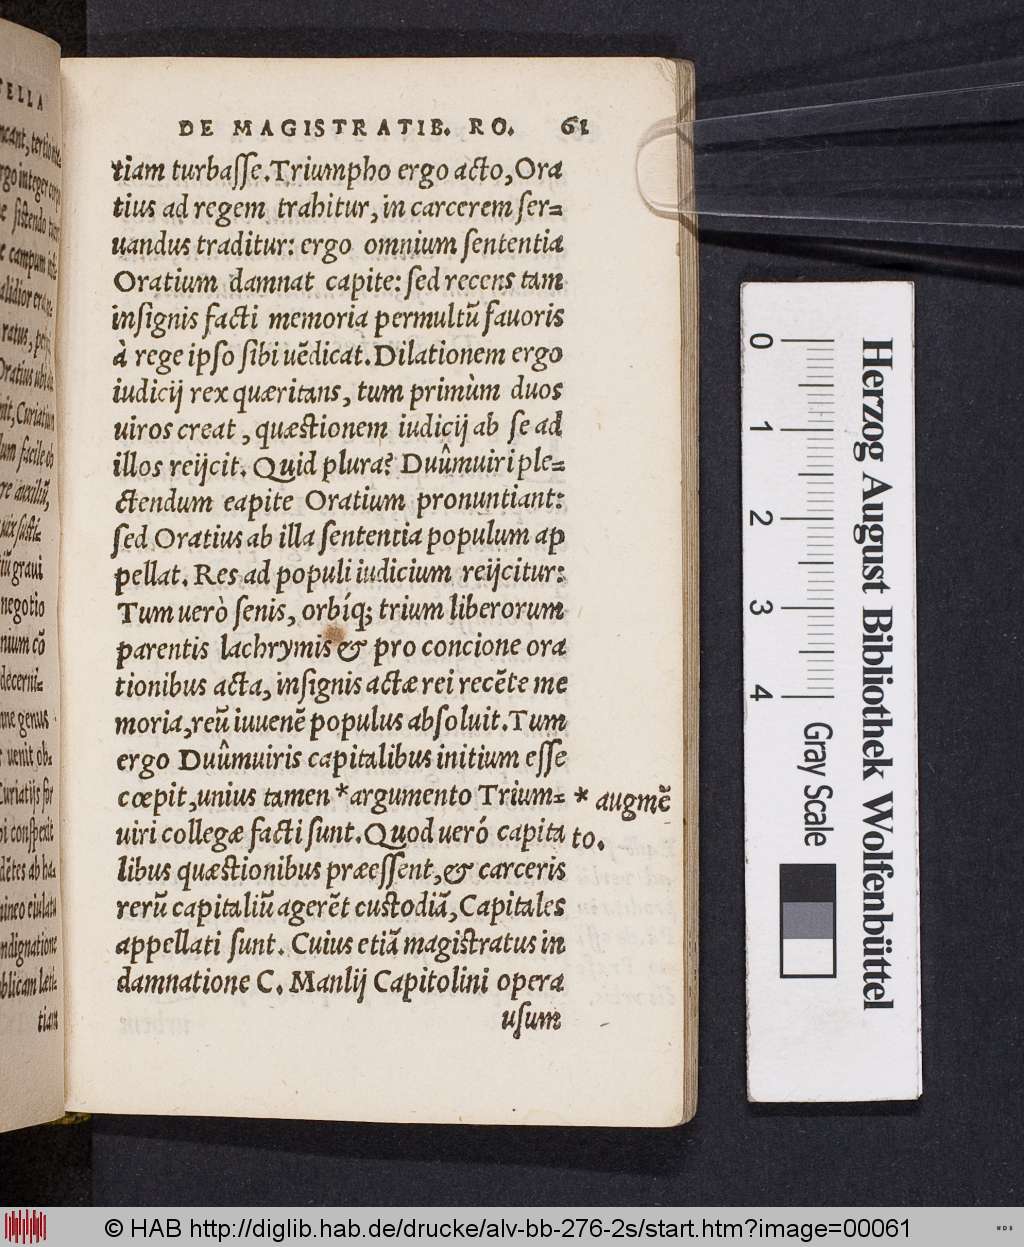 TELLA
DE MAGISTRATIB. RO. 61
tiam turbasse. Triumpho ergo acto, Ora
tius ad regem trahitur, in carcerem ser=
uandus traditur: ergo omnium sententia
Oratium damnat capite: sed recens tam
insignis facti memoria permultũ fauoris
à rege ipso sibi uẽdicat. Dilationem ergo
iudicij rex quæritans, tum primùm duos
uiros creat, quæstionem iudicij ab se ad
illos reijcit. Quid plura? Duûmuiri ple=
ctendum eapite Oratium pronuntiant:
sed Oratius ab illa sententia populum ap
pellat. Res ad populi iudicium reijcitur:
Tum uerò senis, orbíq; trium liberorum
parentis lachrymis & pro concione ora
tionibus acta, insignis actæ rei recẽte me
moria, reũ iuuenẽ populus absoluit. Tum
ergo Duûmuiris capitalibus initium esse
cœpit, unius tamen *argumento Trium=
* augmẽ
uiri collegæ facti sunt. Quod ueró capita
to.
libus quæstionibus præessent, & carceris
rerũ capitaliũ agerẽt custodiã, Capitales
appellati sunt. Cuius etiã magistratus in
damnatione C. Manlij Capitolini opera
usum
graui
negotio
nium cõ
décerni=
genus
uenit ob=
Curiatijs
conspexit
dẽtes ab
indignatione
tiam
0 1 2 3 4
Gray Scale
Herzog August Bibliothek Wolfenbüttel
© HAB http://diglib.hab.de/drucke/alv-bb-276-2s/start.htm?image=00061
WDB